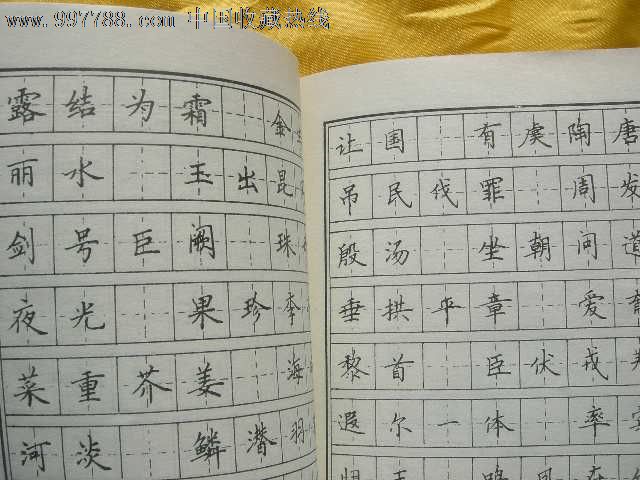 www.997788.com 中国收藏热线
露结为霜 金
丽水 玉出昆
剑号巨阙 珠
夜光 果珍李
菜重芥姜 海
河淡 鳞潜羽
让国 有虞陶唐
吊民伐罪 周发
殷汤 坐朝问道
垂拱平章 爱
黎首 臣伏戎
遐尔一体 率
鸣凤在